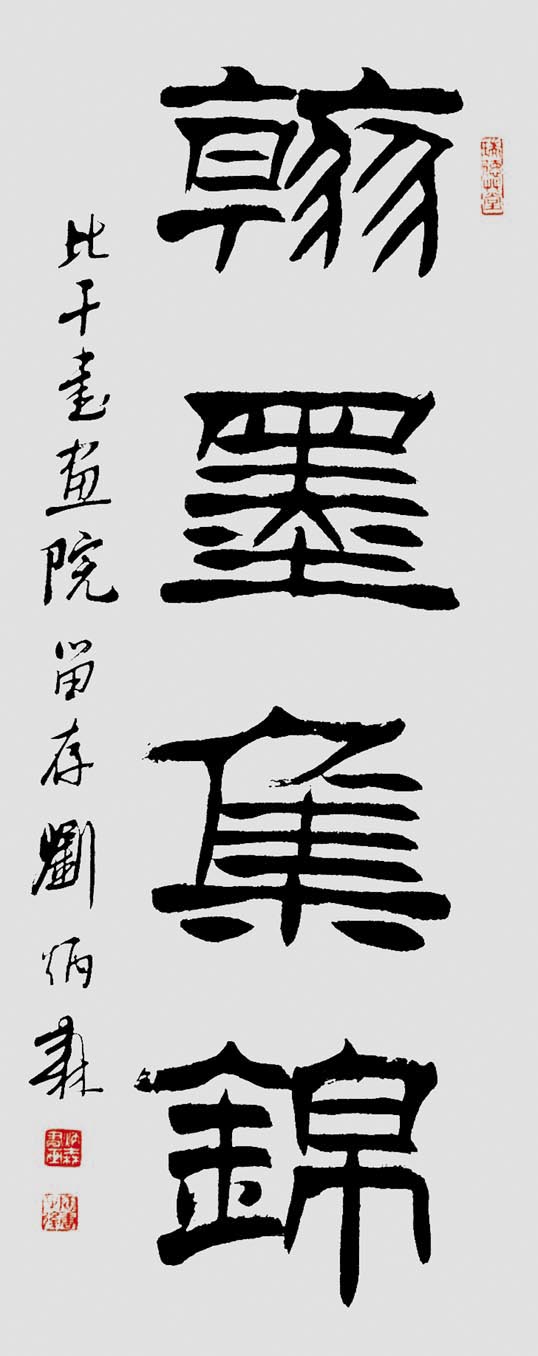 翰墨集錦
比干書画院留存劉炳森